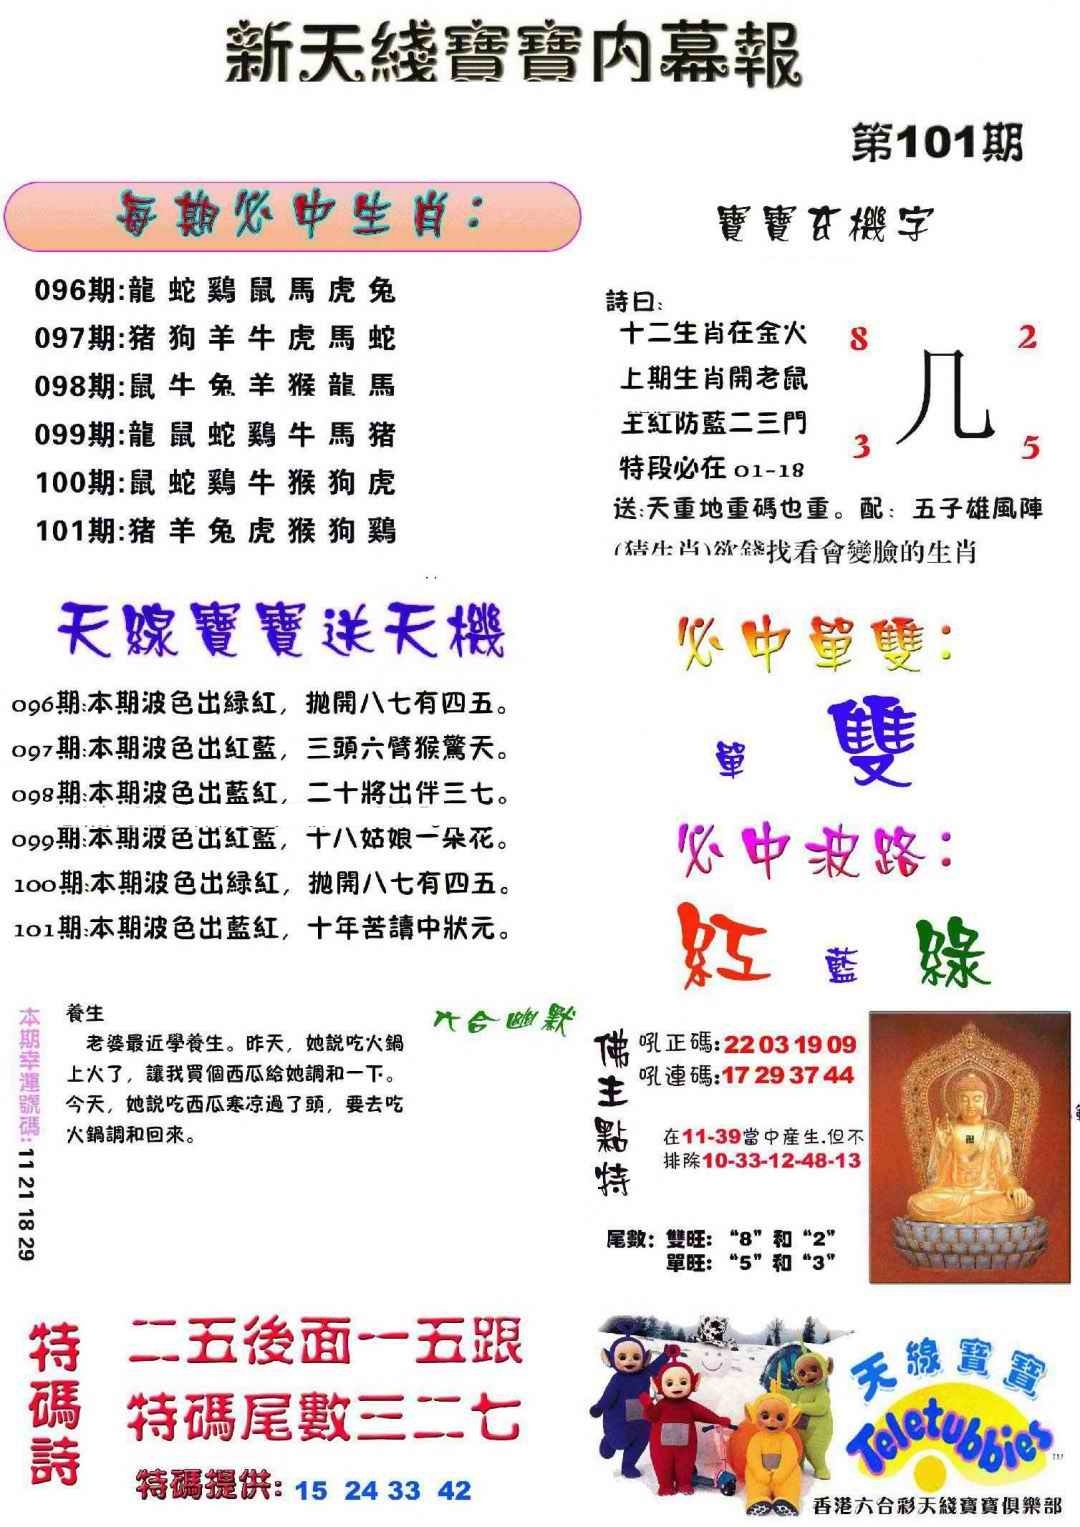 新天綫寶寶内幕報
第101期
每期必中生肖:
096期:龍 蛇 鷄 鼠 馬 虎 兔
097期:猪 狗 羊 牛 虎 馬 蛇
098期:鼠 牛 兔 羊 猴 龍 馬
099期:龍 鼠 蛇 鷄 牛 馬 猪
100期:鼠 蛇 鷄 牛 猴 狗 虎
101期:猪 羊 兔 虎 猴 狗 鷄
寶寶玄機字
詩曰:
十二生肖在金火
上期生肖開老鼠
主紅防藍二三門
特段必在 01-18
8 2
几
3 5
送:天重地重碼也重。配：五子雄風陣
(猜生肖)欲錢找看會變臉的生肖
天線寶寶送天機
096期:本期波色出緑紅，拋開八七有四五。
097期:本期波色出紅藍，三頭六臂猴驚天。
098期:本期波色出藍紅，二十將出伴三七。
099期:本期波色出紅藍，十八姑娘一朵花。
100期:本期波色出緑紅，拋開八七有四五。
101期:本期波色出藍紅，十年苦讀中狀元。
必中單雙:
單 雙
必中波路:
紅 藍 綠
本期幸運號碼:11 21 18 29
六合幽默
養生
老婆最近學養生。昨天，她説吃火鍋
上火了，讓我買個西瓜給她調和一下。
今天，她説吃西瓜寒凉過了頭，要去吃
火鍋調和回來。
佛主點特
吼正碼:22 03 19 09
吼連碼:17 29 37 44
在11-39當中産生.但不
排除10-33-12-48-13
尾數：雙旺：“8”和“2”
單旺：“5”和“3”
特碼詩
二五後面一五跟
特碼尾數三二七
特碼提供: 15 24 33 42
天線寶寶
Teletubbies
TM
香港六合彩天綫寶寶俱樂部